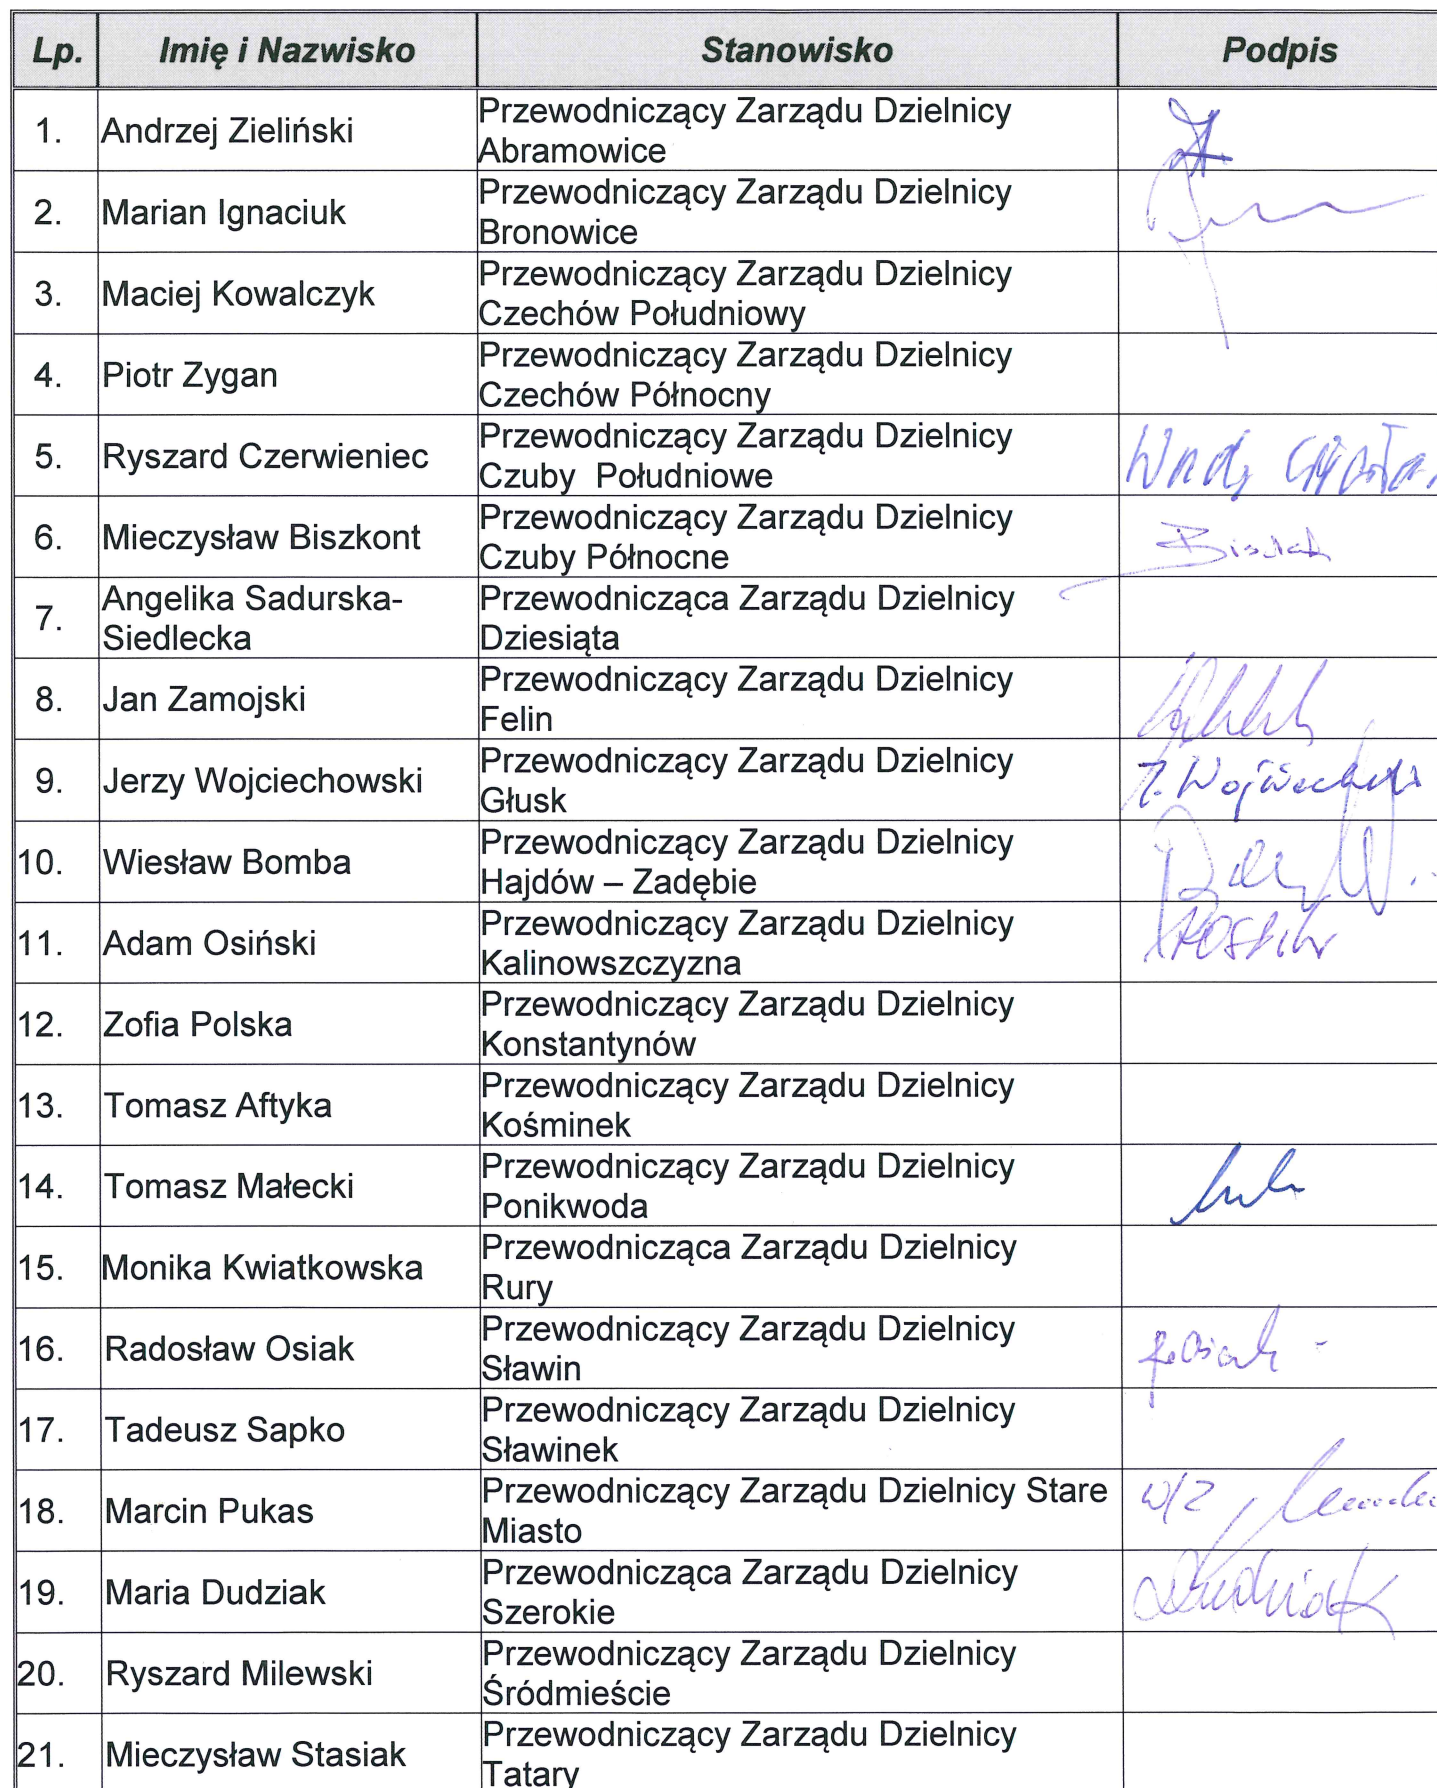 Lp. Imię i Nazwisko Stanowisko Podpis
1. Andrzej Zieliński Przewodniczący Zarządu Dzielnicy
Abramowice
2. Marian Ignaciuk Przewodniczący Zarządu Dzielnicy
Bronowice
3. Maciej Kowalczyk Przewodniczący Zarządu Dzielnicy
Czechów Południowy
4. Piotr Zygan Przewodniczący Zarządu Dzielnicy
Czechów Północny
5. Ryszard Czerwieniec Przewodniczący Zarządu Dzielnicy
Czuby Południowe
6. Mieczysław Biszkont Przewodniczący Zarządu Dzielnicy
Czuby Północne
7. Angelika Sadurska- Przewodnicząca Zarządu Dzielnicy
Siedlecka Dziesiąta
8. Jan Zamojski Przewodniczący Zarządu Dzielnicy
Felin
9. Jerzy Wojciechowski Przewodniczący Zarządu Dzielnicy
Głusk
10. Wiesław Bomba Przewodniczący Zarządu Dzielnicy
Hajdów – Zadębie
11. Adam Osiński Przewodniczący Zarządu Dzielnicy
Kalinowszczyzna
12. Zofia Polska Przewodniczący Zarządu Dzielnicy
Konstantynów
13. Tomasz Aftyka Przewodniczący Zarządu Dzielnicy
Kośminek
14. Tomasz Małecki Przewodniczący Zarządu Dzielnicy
Ponikwoda
15. Monika Kwiatkowska Przewodnicząca Zarządu Dzielnicy
Rury
16. Radosław Osiak Przewodniczący Zarządu Dzielnicy
Sławin
17. Tadeusz Sapko Przewodniczący Zarządu Dzielnicy
Sławinek
18. Marcin Pukas Przewodniczący Zarządu Dzielnicy Stare w/z
Miasto
19. Maria Dudziak Przewodnicząca Zarządu Dzielnicy Dudziak
Szerokie
20. Ryszard Milewski Przewodniczący Zarządu Dzielnicy
Śródmieście
21. Mieczysław Stasiak Przewodniczący Zarządu Dzielnicy
Tatary